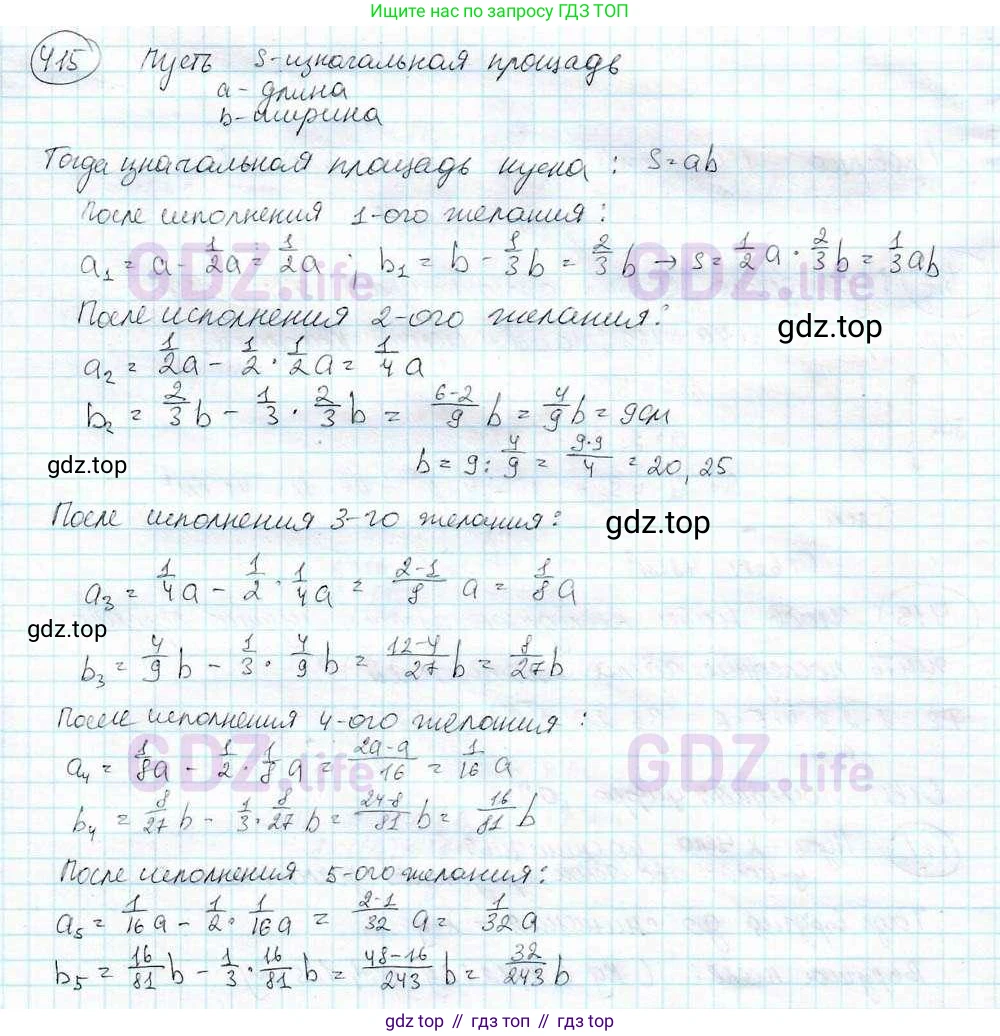 Ищите нас по запросу ГДЗ ТОП
415 Пусть S-изначальная площадь
a - длина
b - ширина
Тогда изначальная площадь куска : S=ab
После исполнения 1-ого желания:
a₁ = a - 1/2a = 1/2a ; b₁ = b - 1/3b = 2/3b → S = 1/2a · 2/3b = 1/3ab
После исполнения 2-ого желания:
gdz.top
a₂ = 1/2a - 1/2 · 1/2a = 1/4a
b₂ = 2/3b - 1/3 · 2/3b = (6-2)/9 b = 4/9b = 9см
gdz.top
b = 9 : 4/9 = (9·9)/4 = 20,25
После исполнения 3-го желания:
gdz.top
a₃ = 1/4a - 1/2 · 1/4a = (2-1)/8 a = 1/8a
gdz.top
b₃ = 4/9b - 1/3 · 4/9b = (12-4)/27 b = 8/27b
После исполнения 4-ого желания :
a₄ = 1/8a - 1/2 · 1/8a = (2a-a)/16 = 1/16a
b₄ = 8/27b - 1/3 · 8/27b = (24-8)/81 b = 16/81b
После исполнения 5-ого желания:
a₅ = 1/16a - 1/2 · 1/16a = (2-1)/32 a = 1/32a
b₅ = 16/81b - 1/3 · 16/81b = (48-16)/243 b = 32/243b
GDZ.life
GDZ.life
GDZ.life
GDZ.life
gdz.top // гдз топ // gdz.top